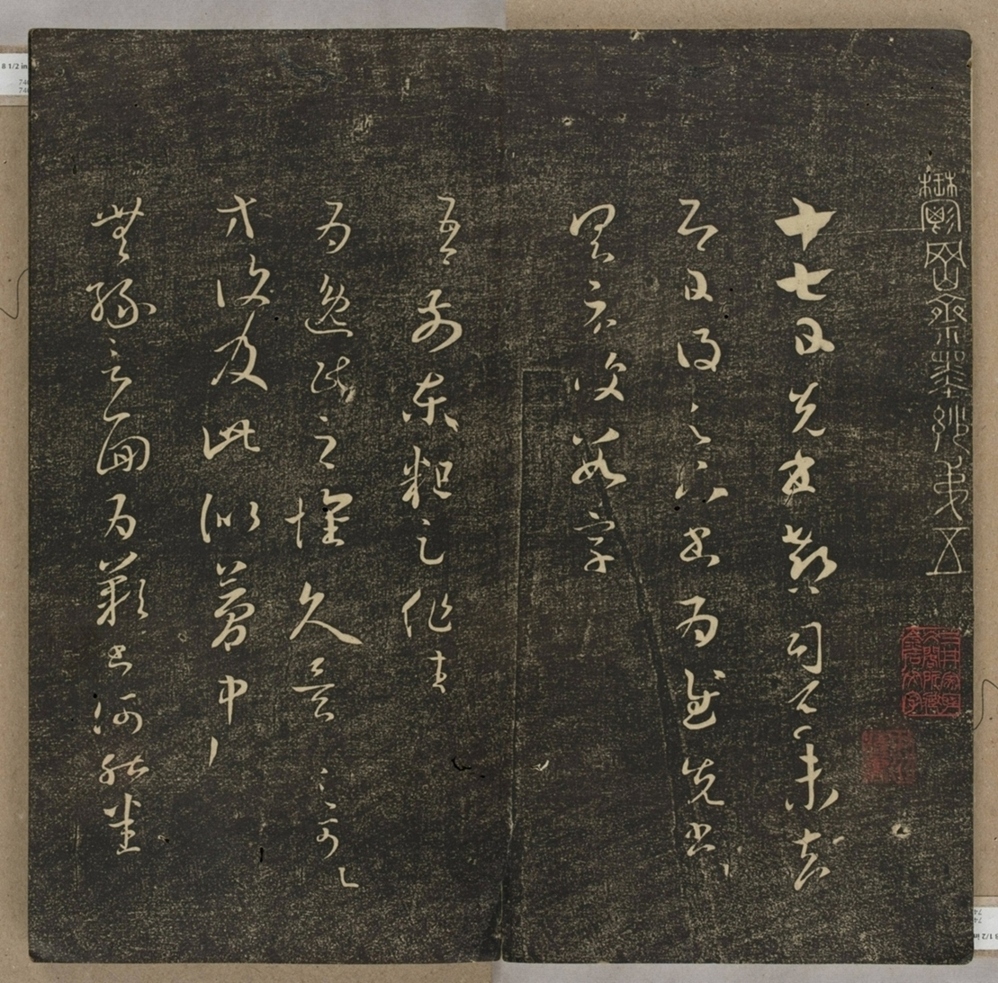 鬱岡齋墨妙第五
十七日先書郗司馬未去
即日得足下書為慰先書以
具示復數字
吾前東粗足作佳
為逸民之懷久矣足下何以
方復及此似夢中
無緣言面為歎書何能悉
8 1/2 in